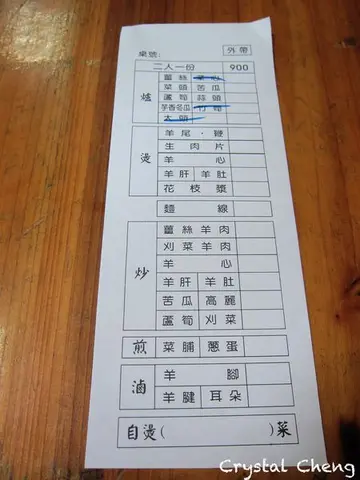 桌號: 外帶
二人一份 900
爐
薑絲 菜心
菜頭 苦瓜
蘆筍 蒜頭
芋香冬瓜 竹筍
大頭
燙
羊尾·鞭
生肉片
羊心
羊肝 羊肚
花枝漿
麵線
炒
薑絲羊肉
刈菜羊肉
羊心
羊肝 羊肚
苦瓜 高麗
蘆筍 刈菜
煎 菜脯 蔥蛋
滷
羊腳
羊腱 耳朵
自燙( )菜
Crystal Cheng